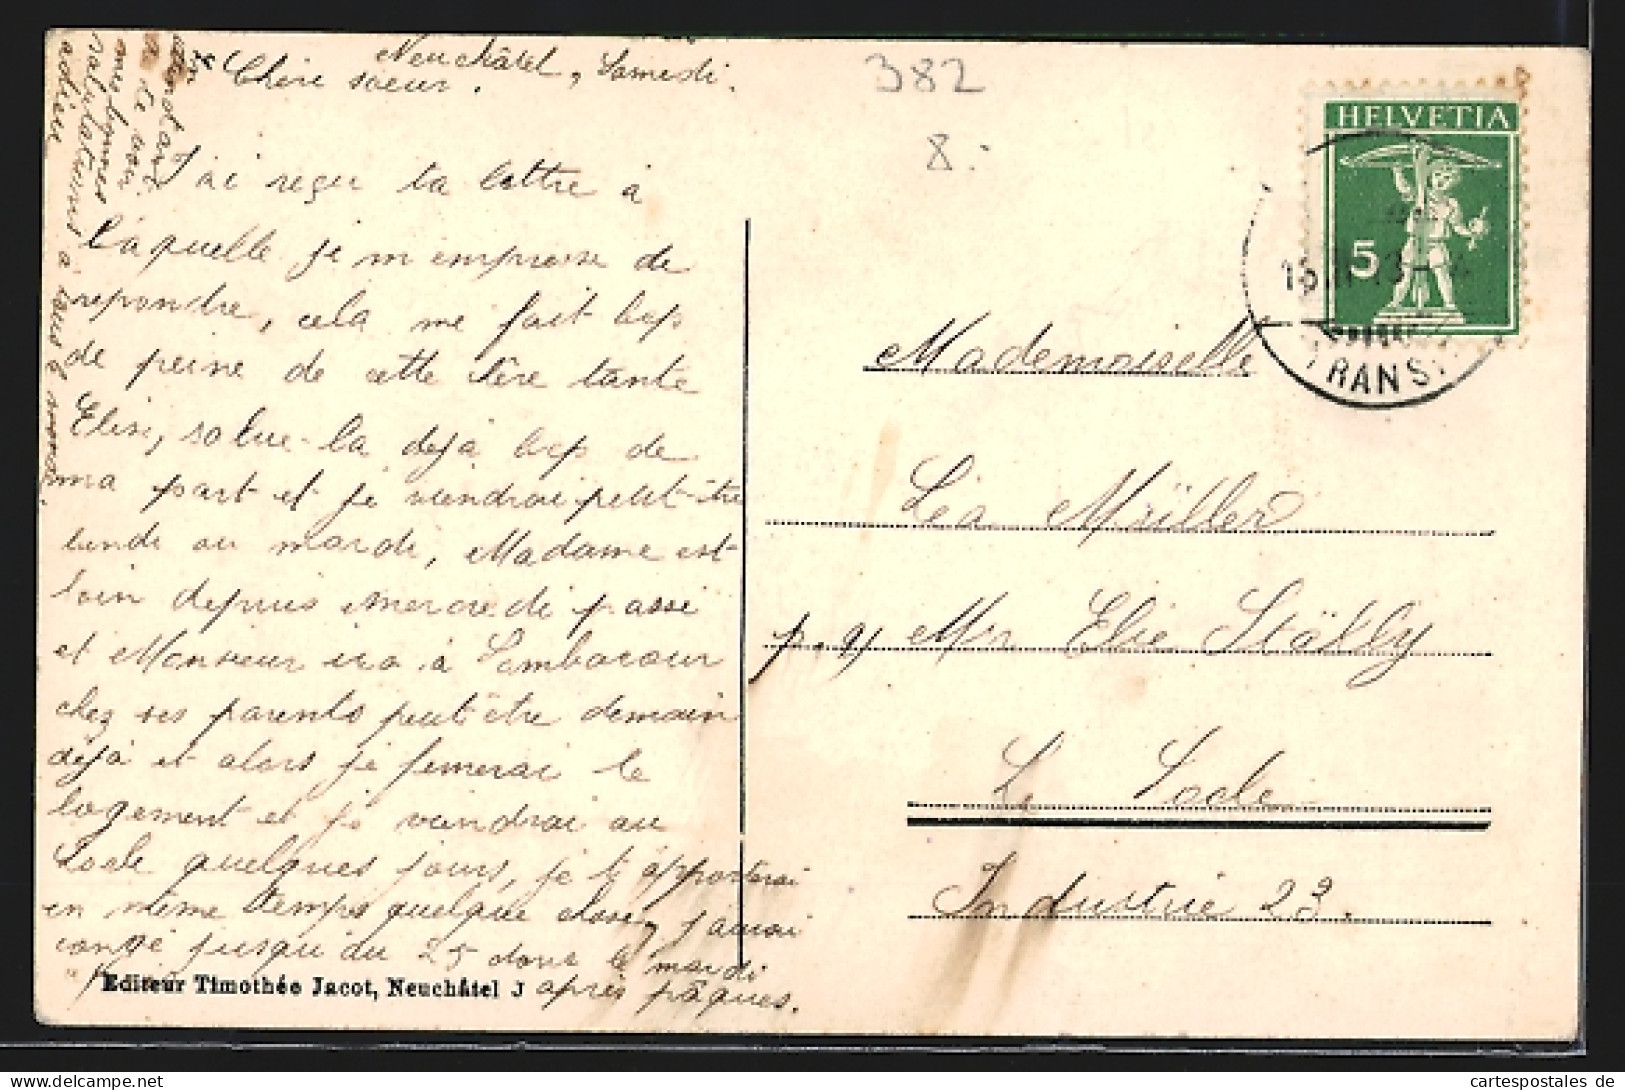 Neuchâtel, Samedi.
Chère soeur.
J'ai reçu ta lettre à
laquelle je m'empresse de
repondre, cela me fait bep
de peine de cette chère tante
Elise, salue-la dejà bep de
ma part et je viendrai peut-être
lundi ou mardi, Madame est
loin depuis mercredi passé
et Monsieur ira à
chez ses parents peut-être demain
dejà et alors je fermerai le
logement et je viendrai au
Locle quelques jours, je t'apporterai
en même temps quelque chose, j'aurai
congé jusqu'au 25 donc le mardi
après pâques.
En
attendant
de voir
mes bonnes
salutations à vous
adieu
382
8.-
HELVETIA
5
TRANS.
Mademoiselle
Léa Müller
p. a Mr Elie Stähly
Le Locle
Industrie 23.
Editeur Timothée Jacot, Neuchâtel J
cartespostales de